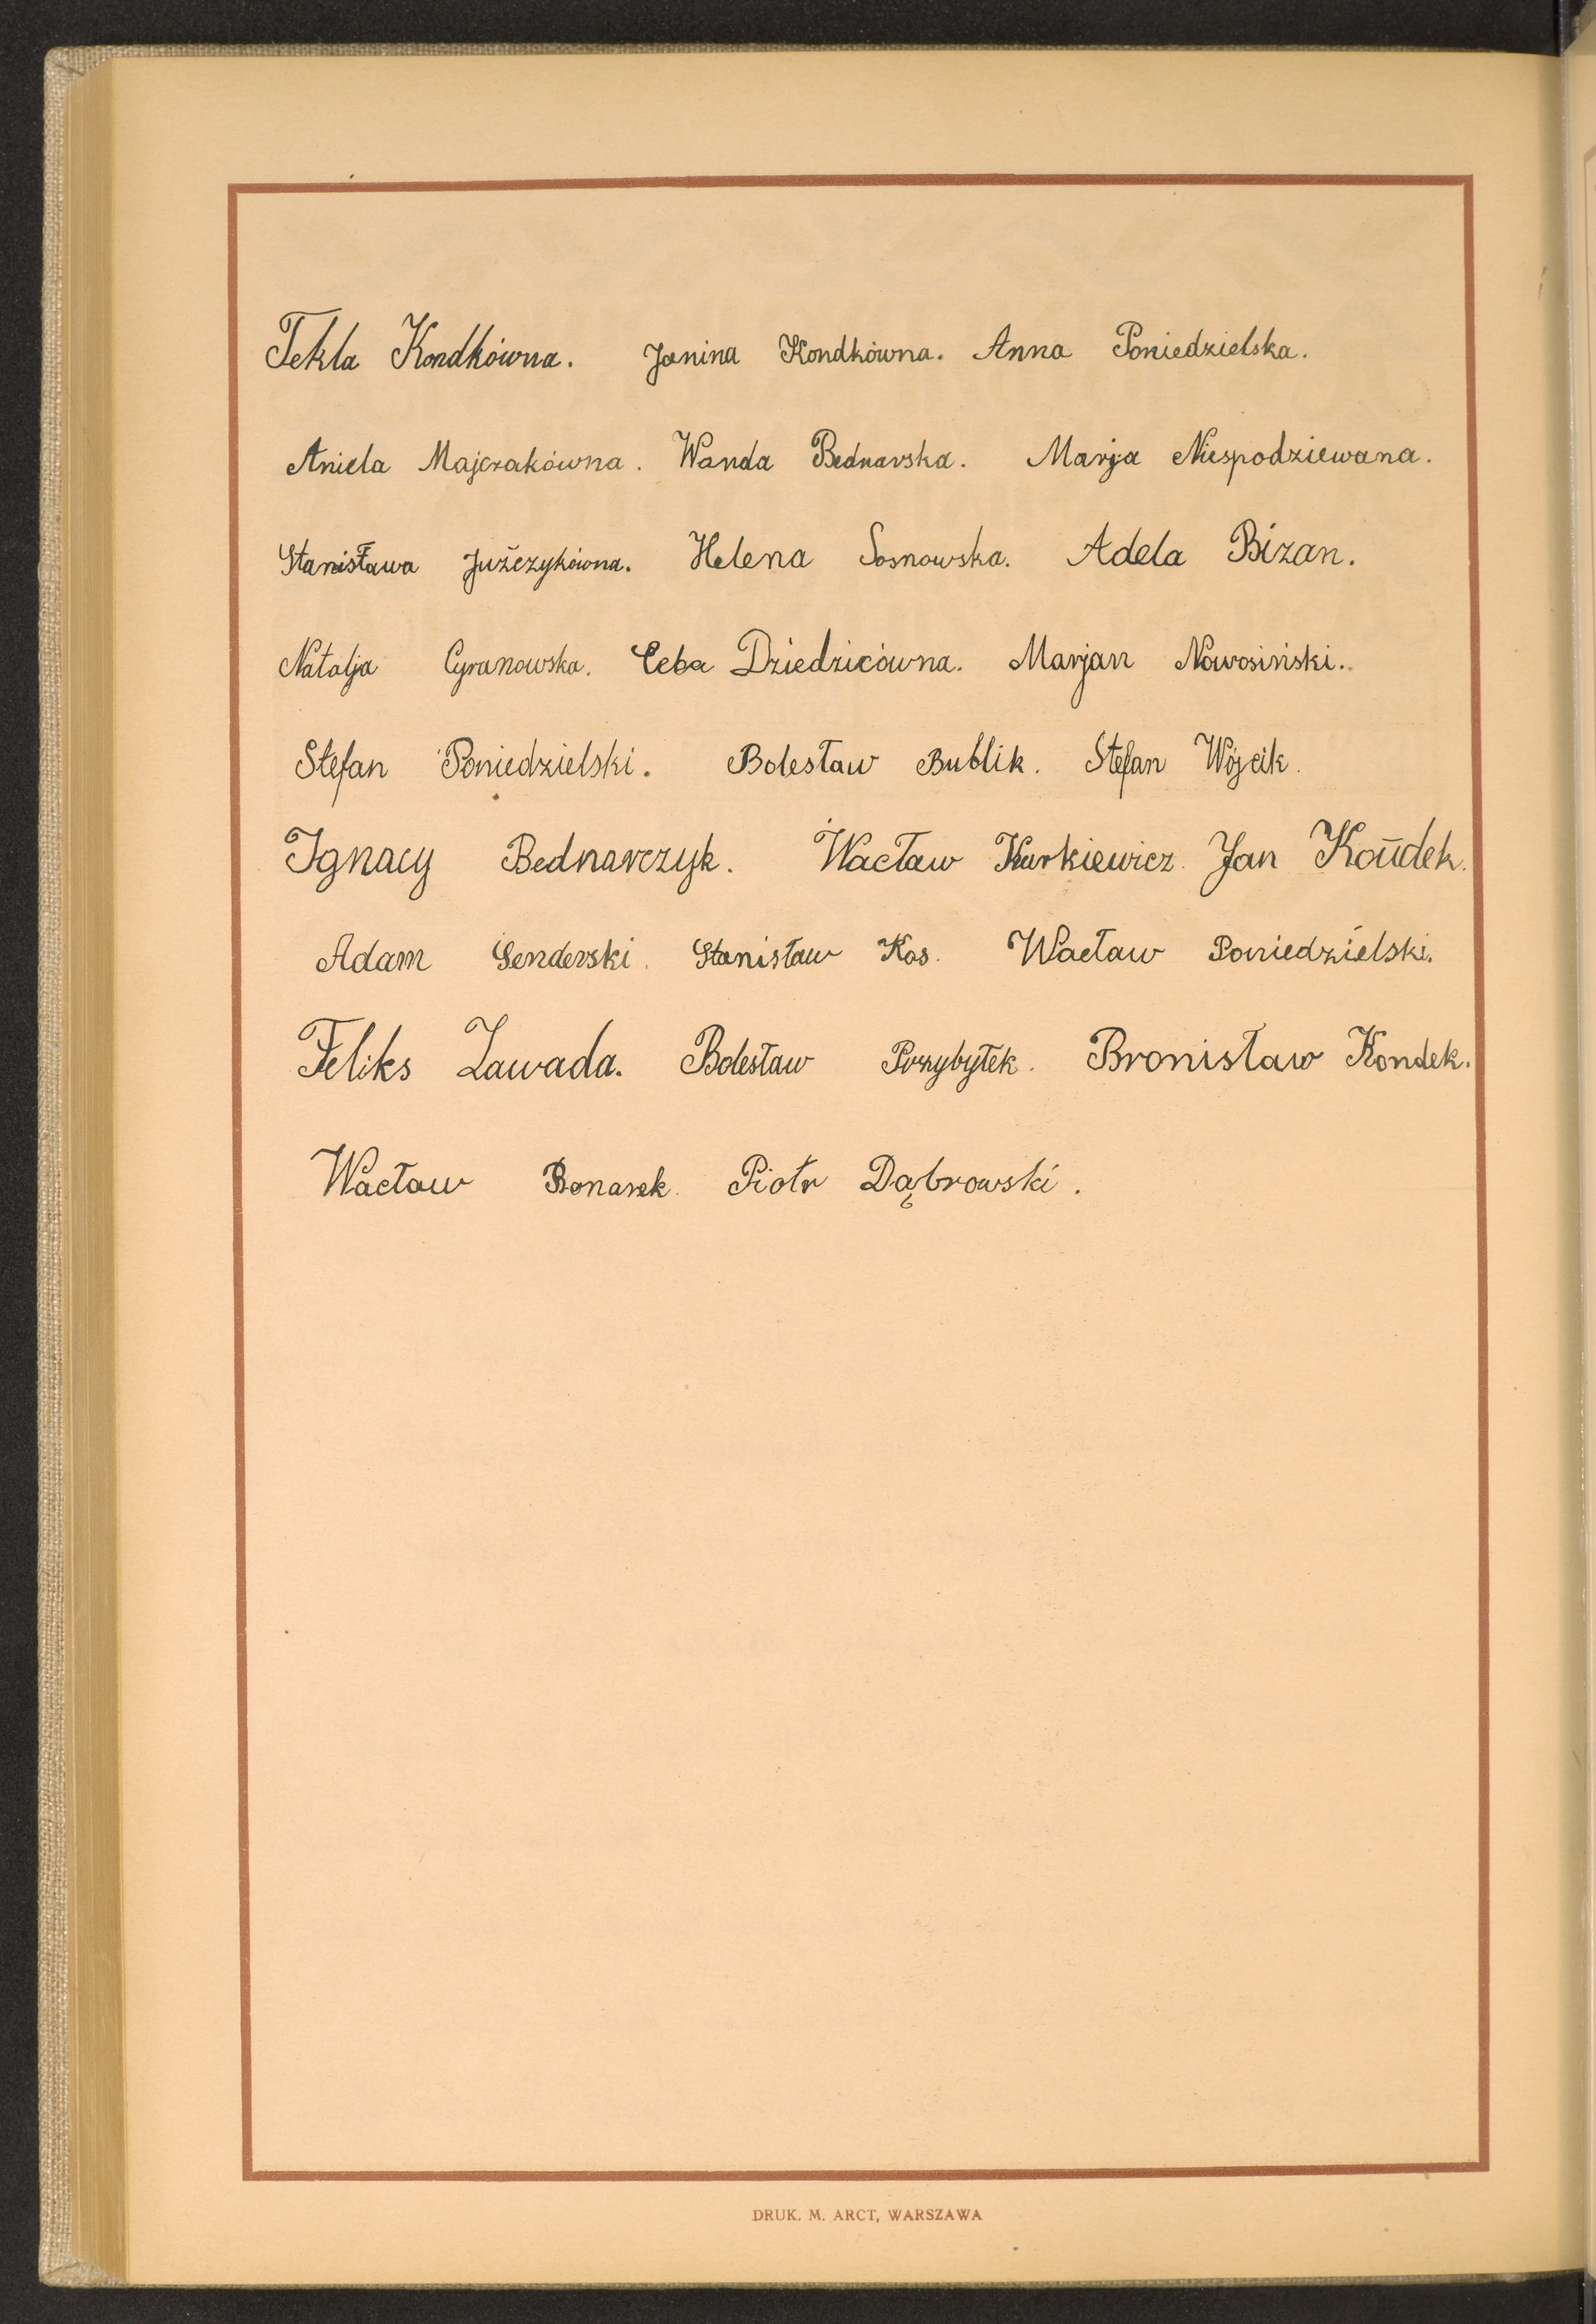 Tekla Kondkówna. Janina Kondkówna. Anna Poniedzielska.
Aniela Majczakówna. Wanda Bednarska. Marja Niespodziewana.
Stanisława Juźczykówna. Helena Sosnowska. Adela Bizan.
Natalja Cyranowska. Ceba Dziedzicówna. Marjan Nowosiński.
Stefan Poniedzielski. Bolesław Bublik. Stefan Wójcik.
Ignacy Bednarczyk. Wacław Kurkiewicz. Jan Koudek.
Adam Senderski. Stanisław Kos. Wacław Poniedzielski.
Feliks Zawada. Bolesław Przybyłek. Bronisław Kondek.
Wacław Bonarek. Piotr Dąbrowski.
DRUK. M. ARCT, WARSZAWA